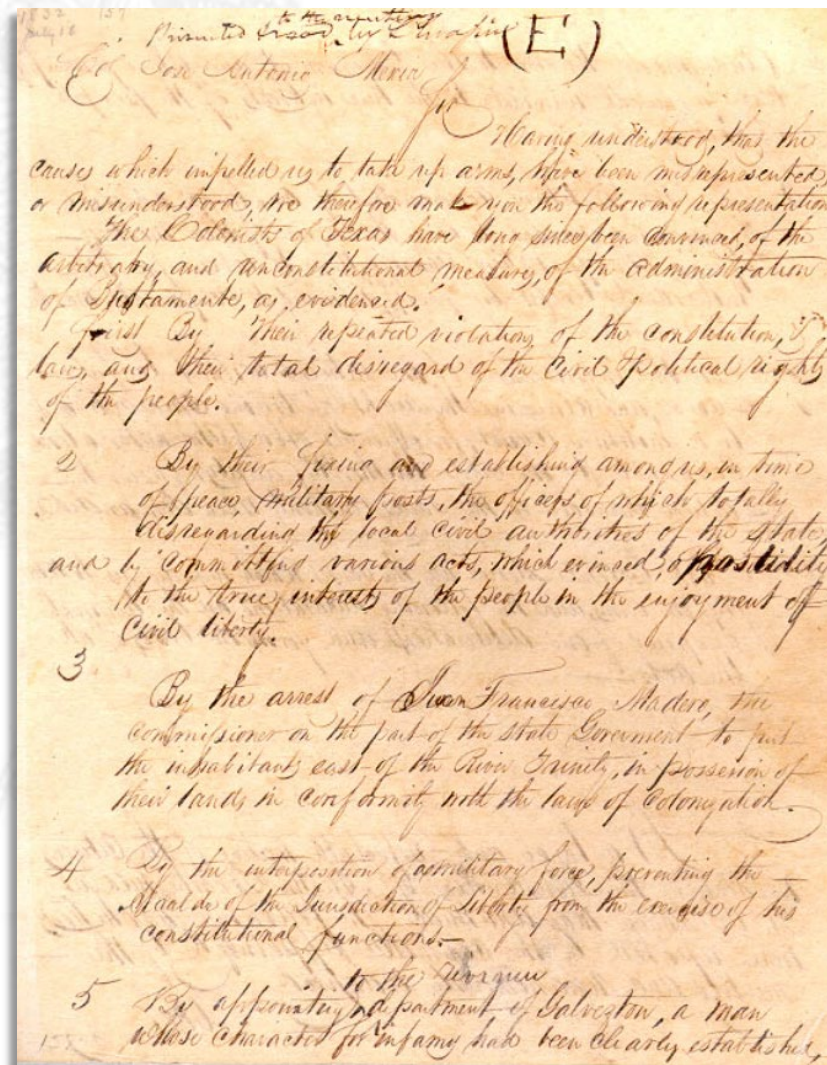 1832 157
July 18
to the meeting
Presented & read by
(E)
Col Jose Antonio Mexia
Sir
Having understood, that the
causes which impelled us to take up arms, have been misrepresented,
or misunderstood, we therefore make you the following representation
The Colonists of Texas have long since been convinced, of the
arbitrary, and unconstitutional measures, of the administration
of Bustamente, as evidenced.
First By their repeated violations of the constitution, &
laws, and their total disregard of the civil & political rights
of the people.
2 By their fixing and establishing among us, in time
of peace military posts, the officers of which totally
disregarding the local civil authorities of the state,
and by committing various acts, which evinced,
to the true interests of the people in the enjoyment of
civil liberty.
3
By the arrest of Juan Francisco Madero, the
commissioner on the part of the state Goverment to put
the inhabitants east of the River Trinity, in possesion of
their lands in conformity with the laws of colonization.
4 By the interposition of a military force, preventing the
Alcalde of the Jurisdiction of Liberty from the exercise of his
constitutional functions.
to the
5 By appointing department of Galveston, a man
whose character for infamy had been clearly established,
158